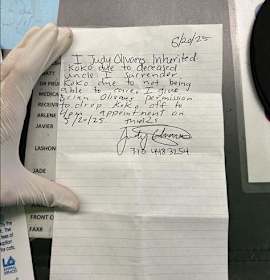 5/20/25
I Judy Olivares Inherited
Koko due to deceased
uncle. I surrender
Koko due to not being
able to care. I give
Brian Olivares permission
to drop Koko off to
appointment on
5/20/25 thanks
310 448 3254
DR F
MEDICA
RECEIVI
ARLENE
JAVIER
LASHON
JADE
FRONT C
FAX#